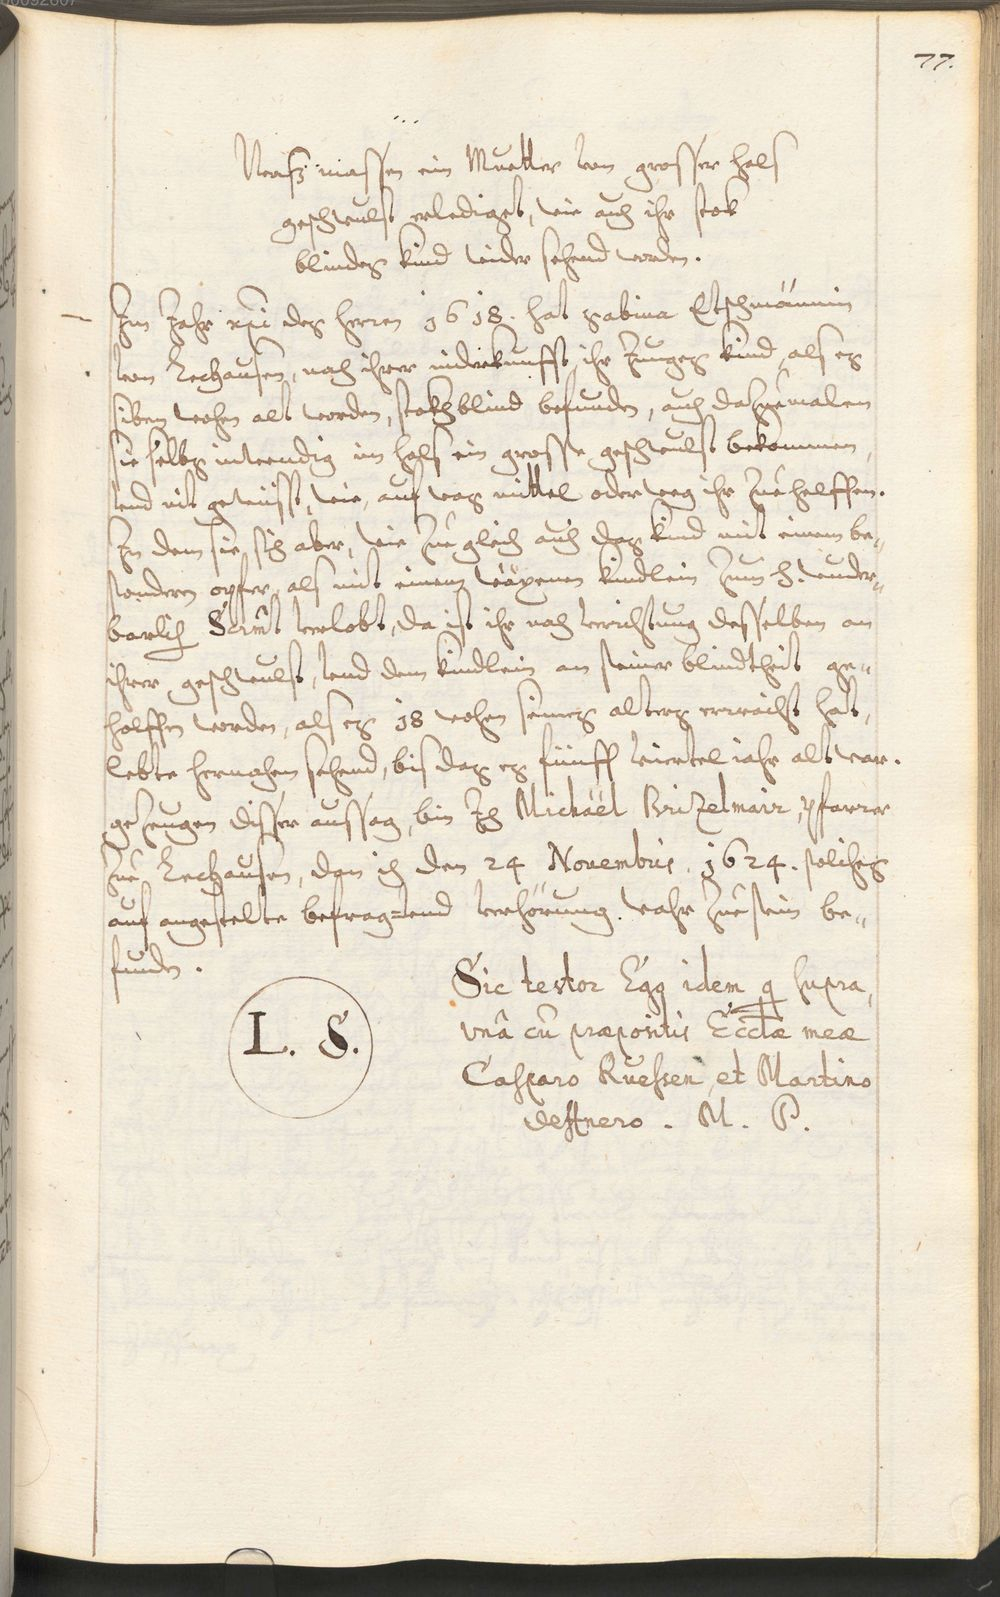 77.
Waß massen ein Muetter von grosser hals
geschwulst erlediget, wie auch ihr stok
blindes kind wider sehend worden.
Im Jahr des herren 1618. hat Sabina Etschmännin
von Lechausen, nach ihrer niderkunfft, ihr Junges kind, als es
siben wochen alt worden, stokhblind befunden, auch dazuemalen
sie selbs inwendig im hals ein grosse geschwulst bekommen,
vnd nit gewüsst, wie, auf was mittel oder weg ihr zue helffen.
In dem sie sich aber, wie zue gleich auch das kind mit einem be„
sonderen opfer, als mit einem wäxenen kindlein zum H. wunder„
barlich Sacrmt verlobt, da ist ihr nach verrichtung desselben an
ihrer geschwulst, vnd dem kindlein an seiner blindtheit ge„
holffen worden, als es 18 wochen seines alters erraicht hat,
lebte hernachen sehend, bis das es fünff viertel iahr alt war.
gezeugen disser aussag, bin Ich Michäël Brizelmair, pfarrer
zue Lechausen, dan ich den 24 Nouembris. 1624. solches
auf angestelte befrag= vnd verhörung. wahr zue sein be„
funden.
L. S.
Sic testor Ego idem q supra,
vnâ cû præpositis Ecctæ meæ
Casparo Ruessen, et Martino
M. P.